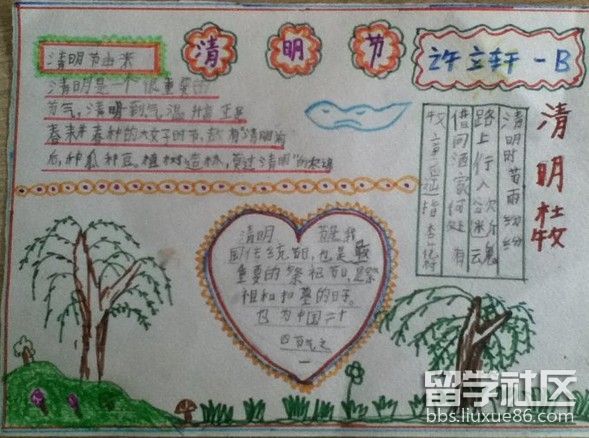 清明节
许立轩一B
清明节由来
清明是一个很重要的
节气,清明到气温升高正是
春耕春种的大好时节,故有"清明前
后,种瓜种豆,植树造林,莫过清明"的农谚
清明杜牧
清明时节雨纷纷
路上行人欲断魂
借问酒家何处有
牧童遥指杏花村
清明 节是我
国传统节日,也是最
重要的祭祀节日,是祭
祖和扫墓的日子。
也为中国二十
四节气之
一
留学社区
bbs.liuxue86.com